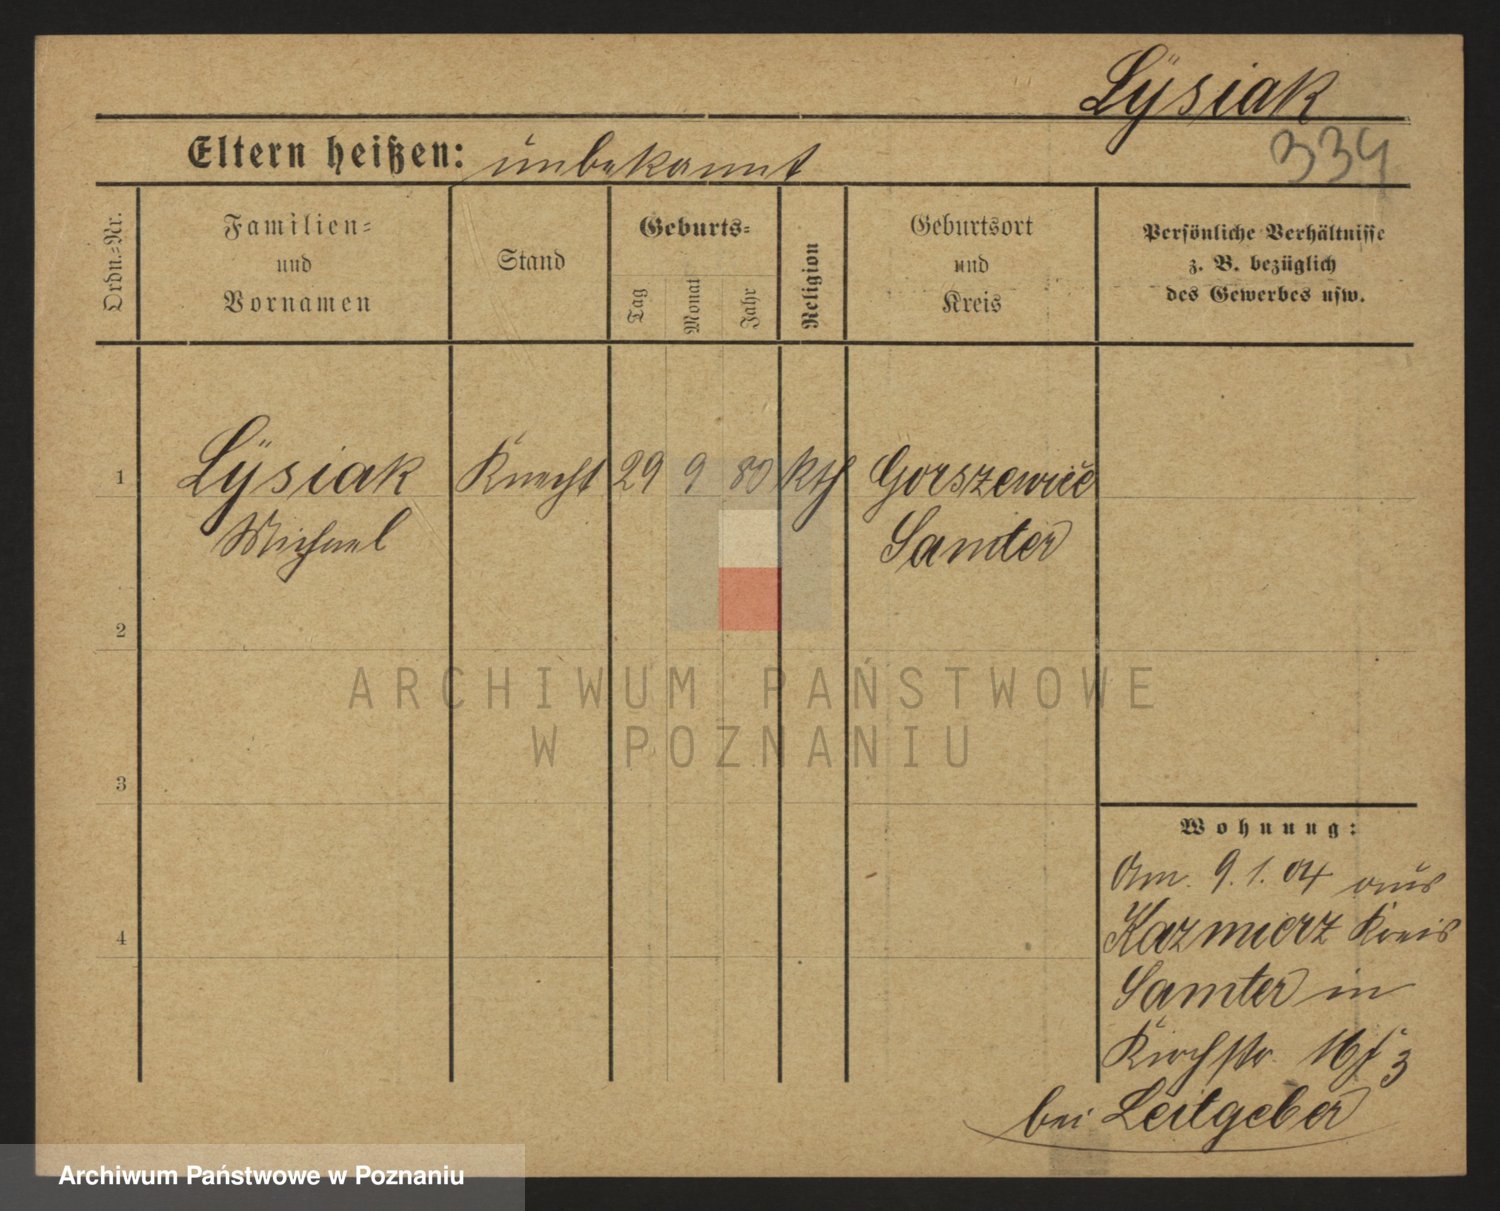 Lÿsiak
334
Eltern heißen: unbekannt
Ordn.-Nr.
Familien-
und
Vornamen
Stand
Geburts-
Tag
Monat
Jahr
Religion
Geburtsort
und
Kreis
Persönliche Verhältnisse
z. B. bezüglich
des Gewerbes usw.
1 Lÿsiak Knecht 29 9 80 kth Gorszewice
Michael Samter
2
3
4
Wohnung:
Am. 9.1.04 aus
Kazmierz Kreis
Samter in
Kirchstr.
bei Leitgeber
ARCHIWUM PAŃSTWOWE
W POZNANIU
Archiwum Państwowe w Poznaniu